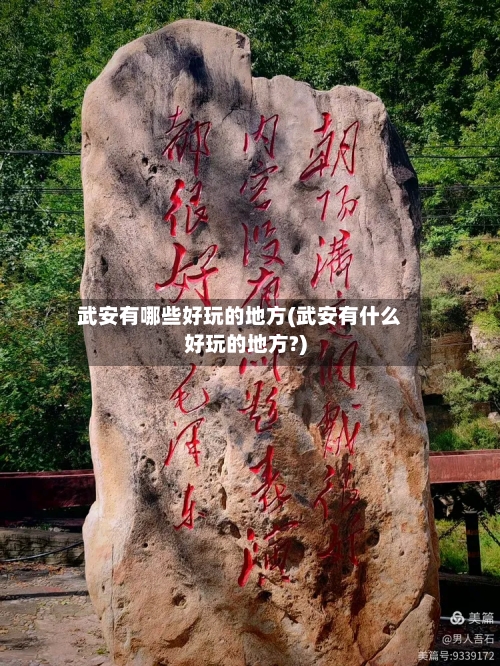 朝阳溝这个戏很好
内容没有问题表演
都很好
毛泽东
武安有哪些好玩的地方(武安有什么
好玩的地方?)
美篇
@男人吾石
美篇号:9339172